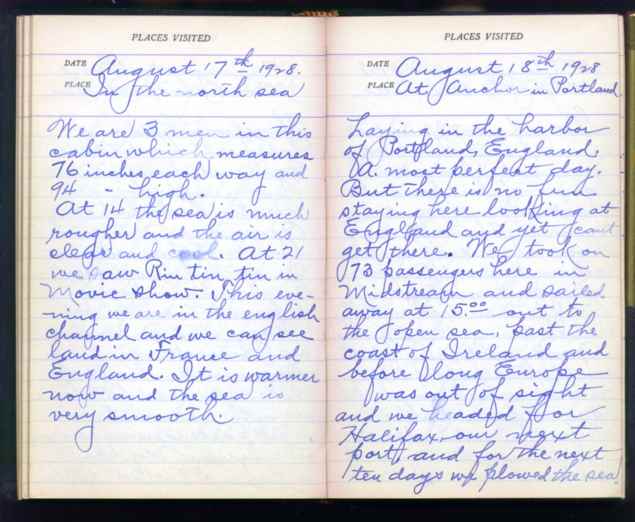 PLACES VISITED
DATE August 17th 1928.
PLACE In the north sea
We are 3 men in this
cabin which measures
76 inches each way and
94 " high.
At 14 the sea is much
rougher and the air is
clear and cool. At 21
we saw Rin tin tin in
Movie show. This eve-
ning we are in the english
channel and we can see
land in France and
England. It is warmer
now and the sea is
very smooth.
PLACES VISITED
DATE August 18th 1928
PLACE At Anchor in Portland
Laying in the harbor
of Portland, England.
A most perfect day.
But there is no fun
staying here looking at
England and yet can't
get there. We took on
73 passengers here in
Midstream and sailed
away at 15:00 out to
the open sea, past the
coast of Ireland and
before long Europe
was out of sight
and we headed for
Halifax, our next
port and for the next
ten days we plowed the sea